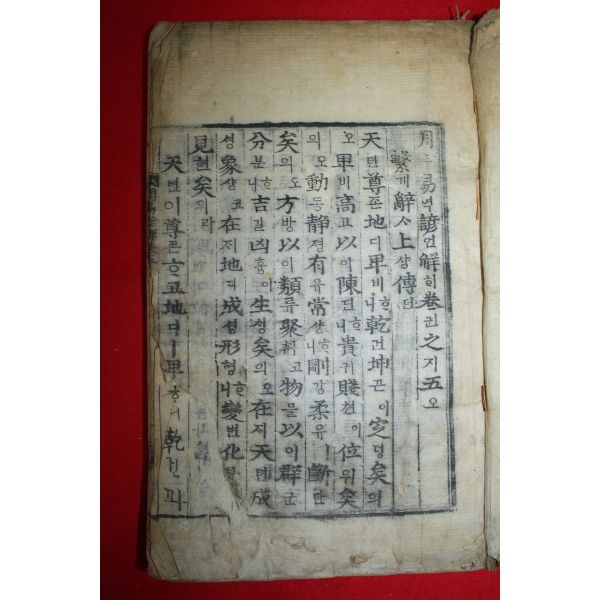 周쥬易역諺언解ᄒᆡ卷권之지五오
繫계辭ᄉᆞ上샹傳뎐
天텬尊존地디卑비ᄒᆞ니乾건坤곤이定뎡矣의
오卑비高고以이陳딘ᄒᆞ니貴귀賤쳔이位위矣
의오動동靜졍有유常샹ᄒᆞ니剛강柔유ㅣ斷단
矣의오方방以이類류聚취코物믈以이群군
分분ᄒᆞ니吉길凶흉이生ᄉᆡᆼ矣의오在ᄌᆡ天텬成
셩象샹코在ᄌᆡ地디成셩形형ᄒᆞ니變변化화
見현矣의라
天텬이尊존ᄒᆞ고地디ㅣ卑ᄒᆞ니乾건과